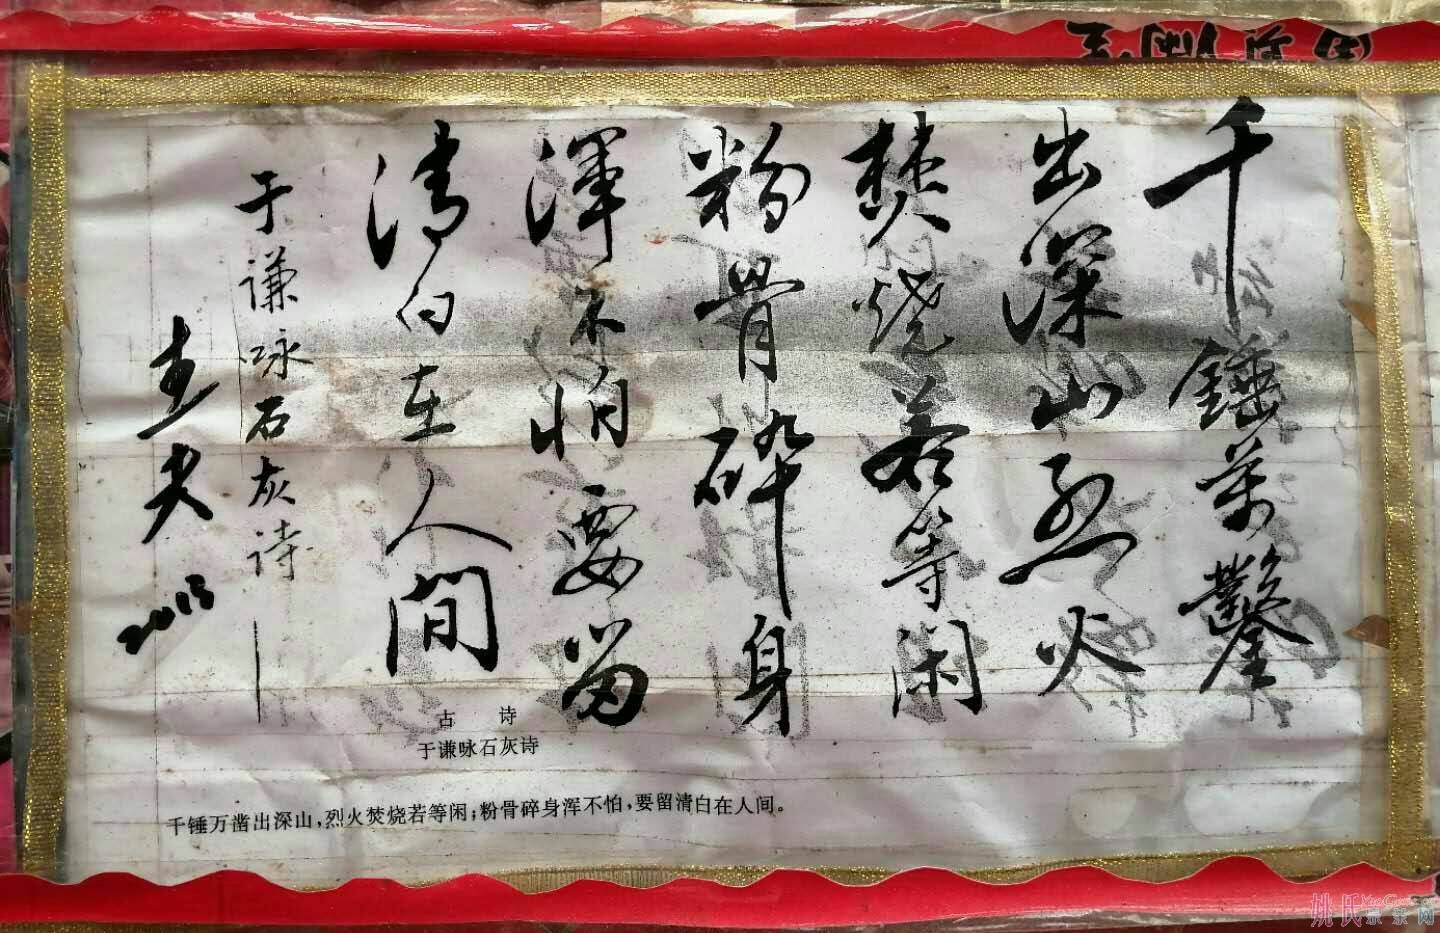 千錘萬鑿
出深山烈火
焚燒若等闲
粉骨碎身
渾不怕要留
清白在人間
于谦咏石灰诗
古 诗
于谦咏石灰诗
千锤万凿出深山，烈火焚烧若等闲；粉骨碎身浑不怕，要留清白在人间。
姚氏宗亲网